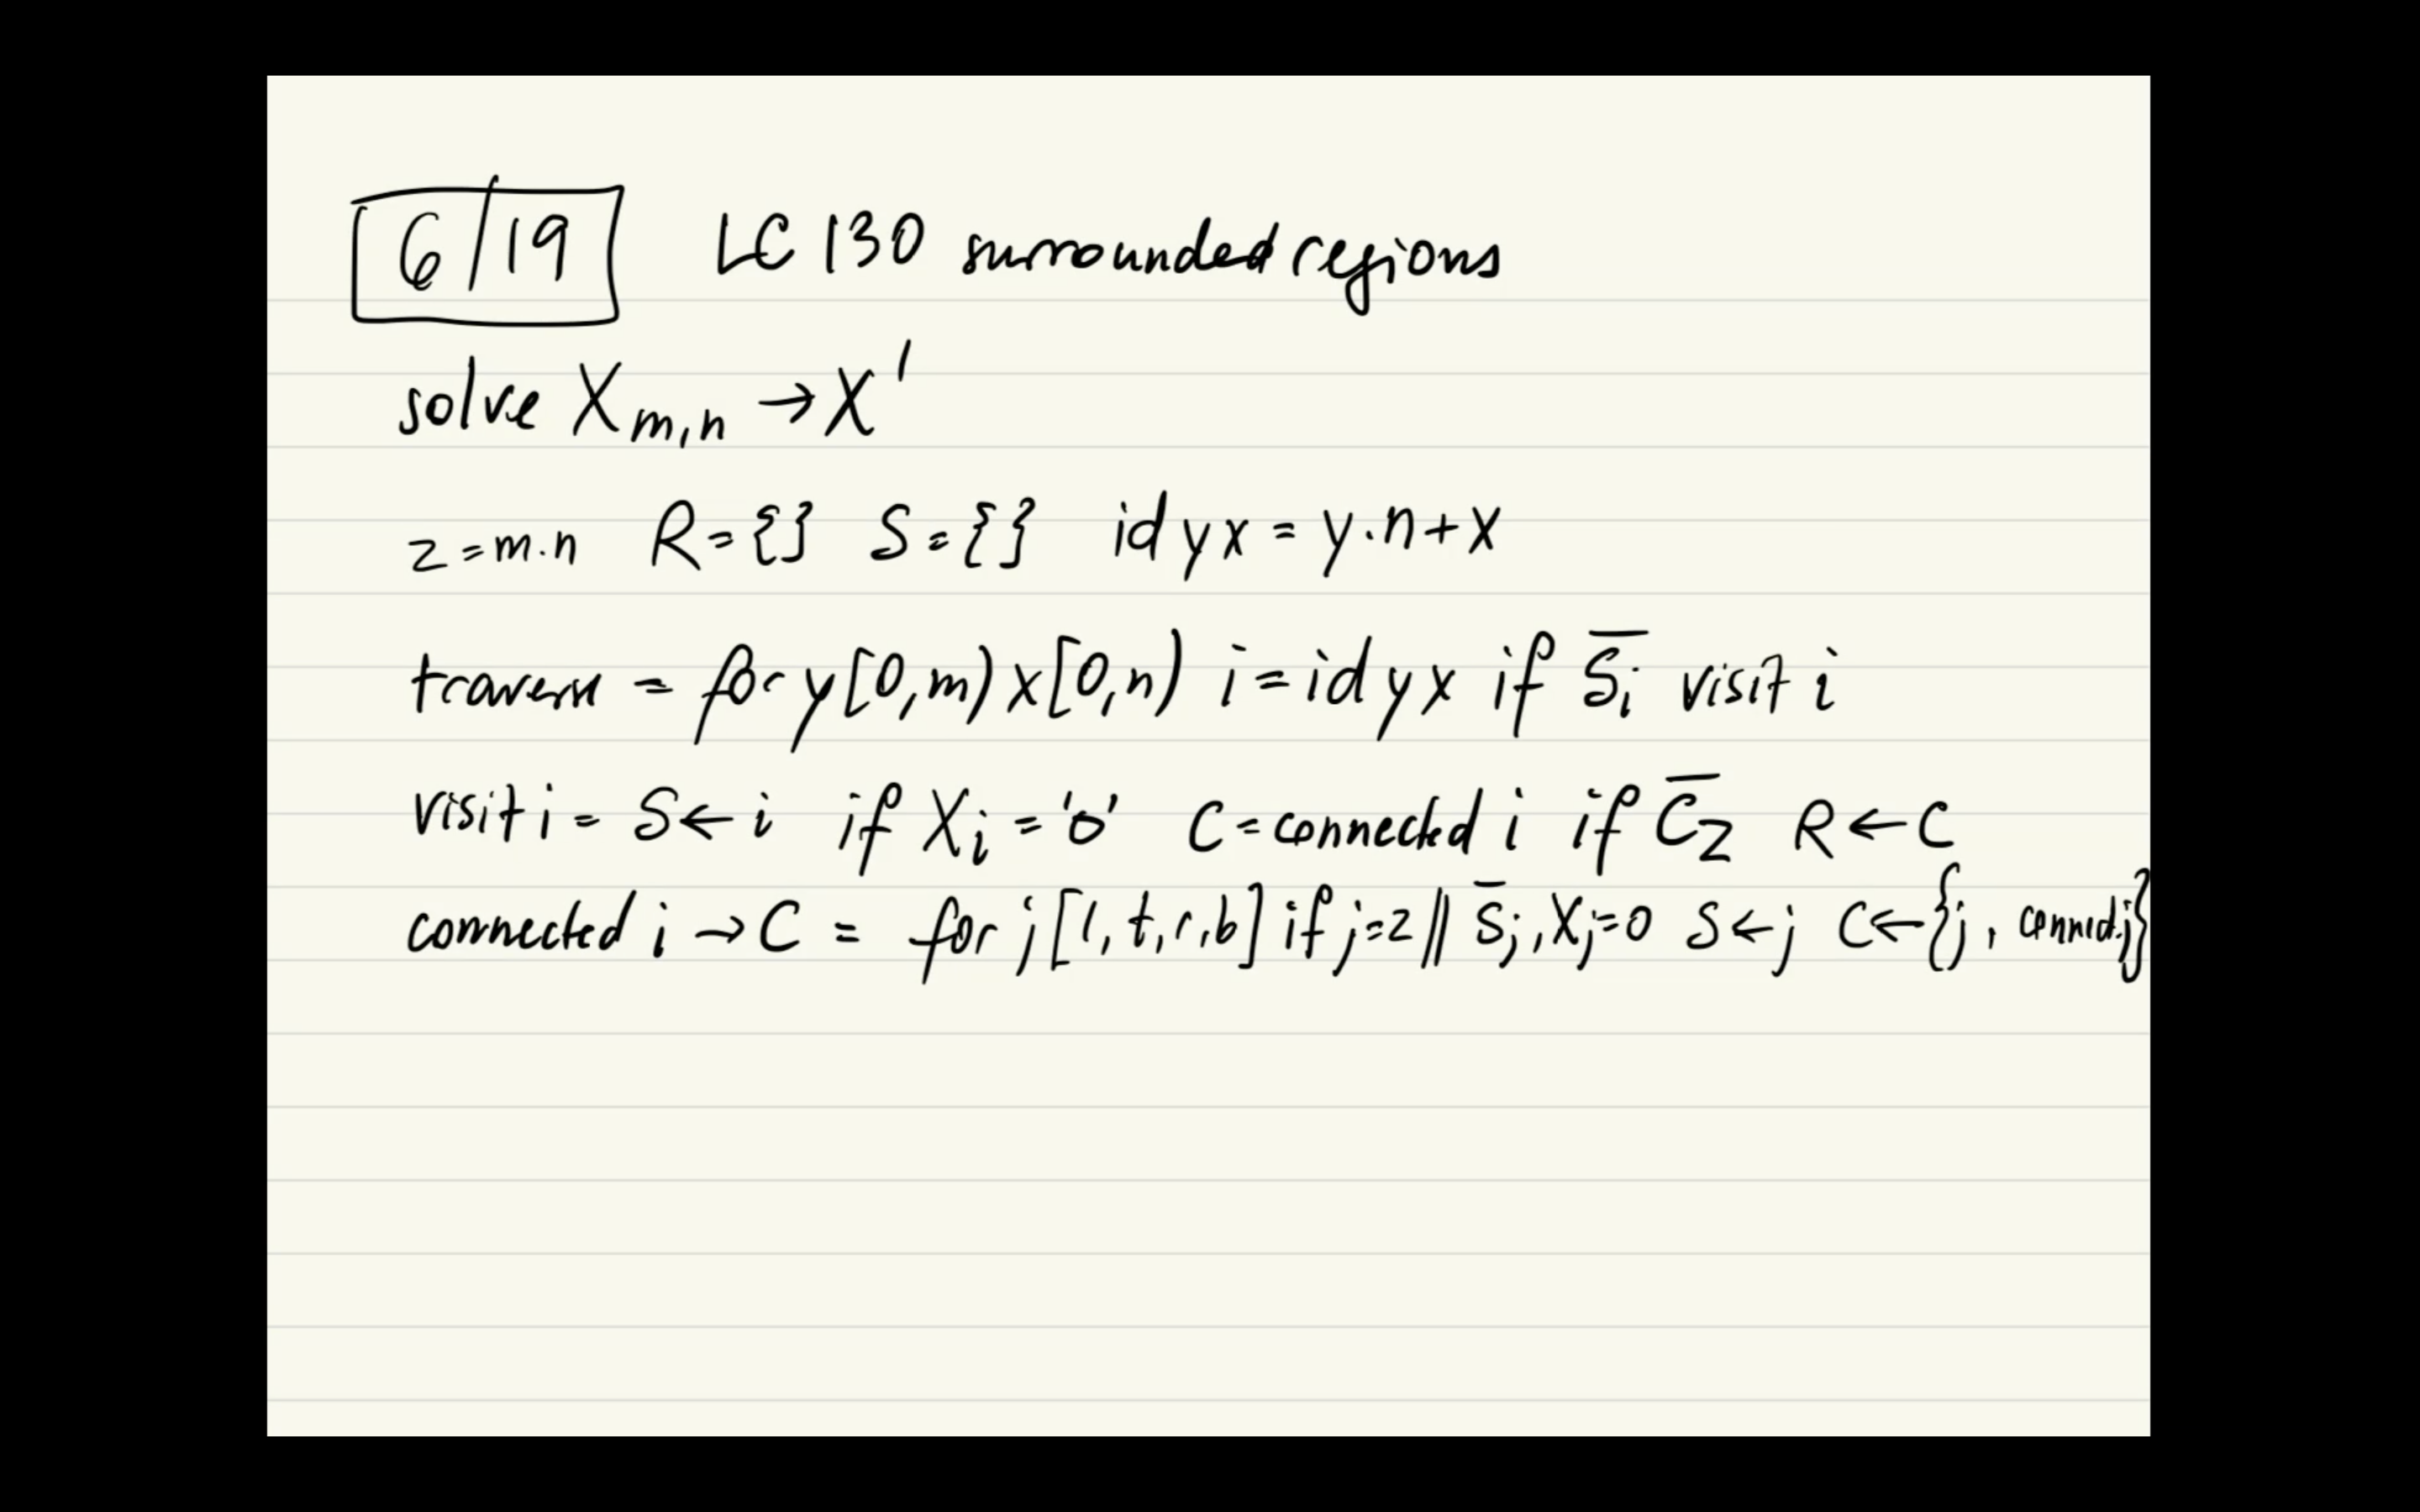 6/19 LC 130 surrounded regions
solve Xm,n → X'
z = m·n R={} S={} id y x = y·n+x
traverse = for y[0,m) x[0,n) i = id y x if S̅i visit i
visit i = S ← i if Xi = 'O' C = connected i if C̅z R ← C
connected i → C = for j [l, t, r, b] if j=z || S̅j, Xj=0 S ← j C ← {j, connect.j}